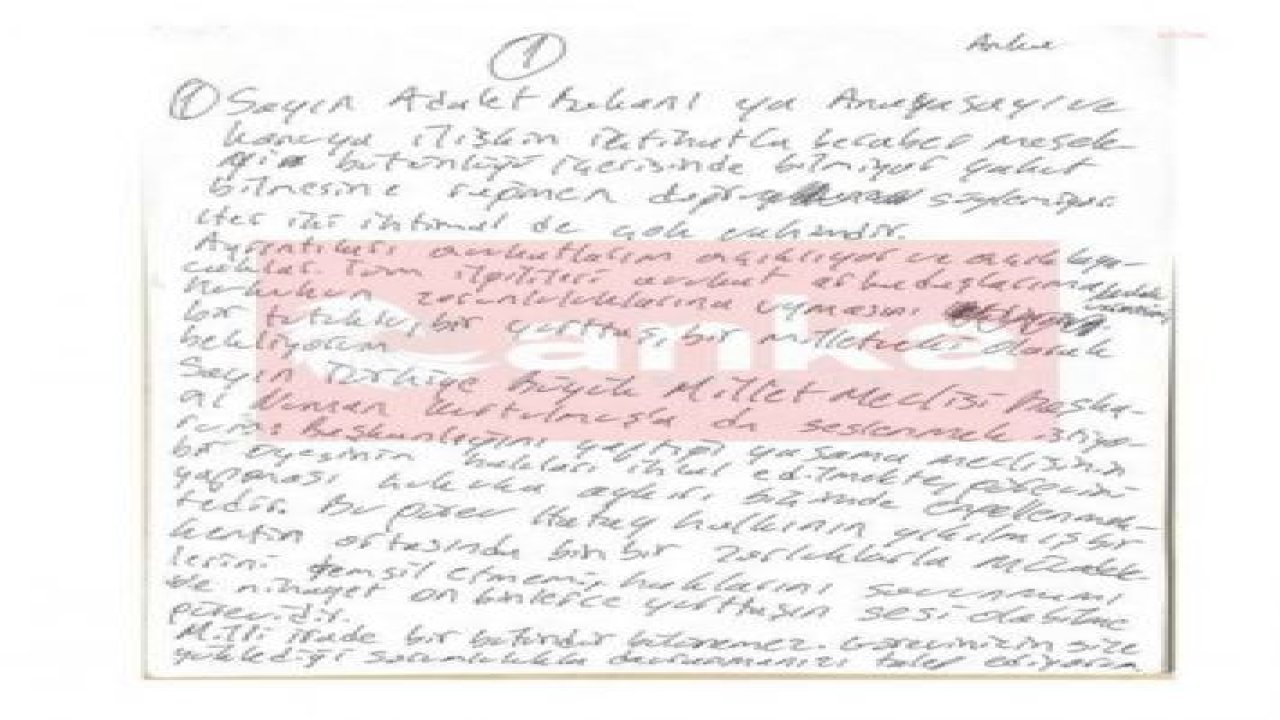 1
Anka
① Sayın Adalet Bakanı ya Anayasayı ve
konuya ilişkin içtihatla beraber mesele-
yi bütünlüğü içerisinde bilmiyor yahut
bilmesine rağmen doğru söylemiyor.
Her iki ihtimal de çok vahimdir.
Ayrıntıları avukatlarım açıklıyor ve açıklaya-
caklar. Tüm ilgilileri avukat arkadaşlarıma
hukukun zorunluluklarına uymasını
bir tutuklu, bir yurttaş, bir milletvekili olarak
bekliyorum.
Sayın Türkiye Büyük Millet Meclisi Başka-
nı Numan Kurtulmuş'a da seslenmek istiyo-
rum. Başkanlığını yaptığı yasama meclisinin
bir üyesinin hakları ihlal edilmekte, görevini
yapması hukuka aykırı biçimde engellenmek-
tedir. Bu görev Hatay halkının yıkılmış bir
kentin ortasında bin bir zorluklarla mücade-
lerini temsil etmemi, haklarını savunmamı
ve nihayet on binlerce yurttaşın sesi olabilme
görevidir.
Milli irade bir bütündür bölünemez. Görevinizin size
yüklediği sorumlulukla davranmanızı talep ediyorum
anka